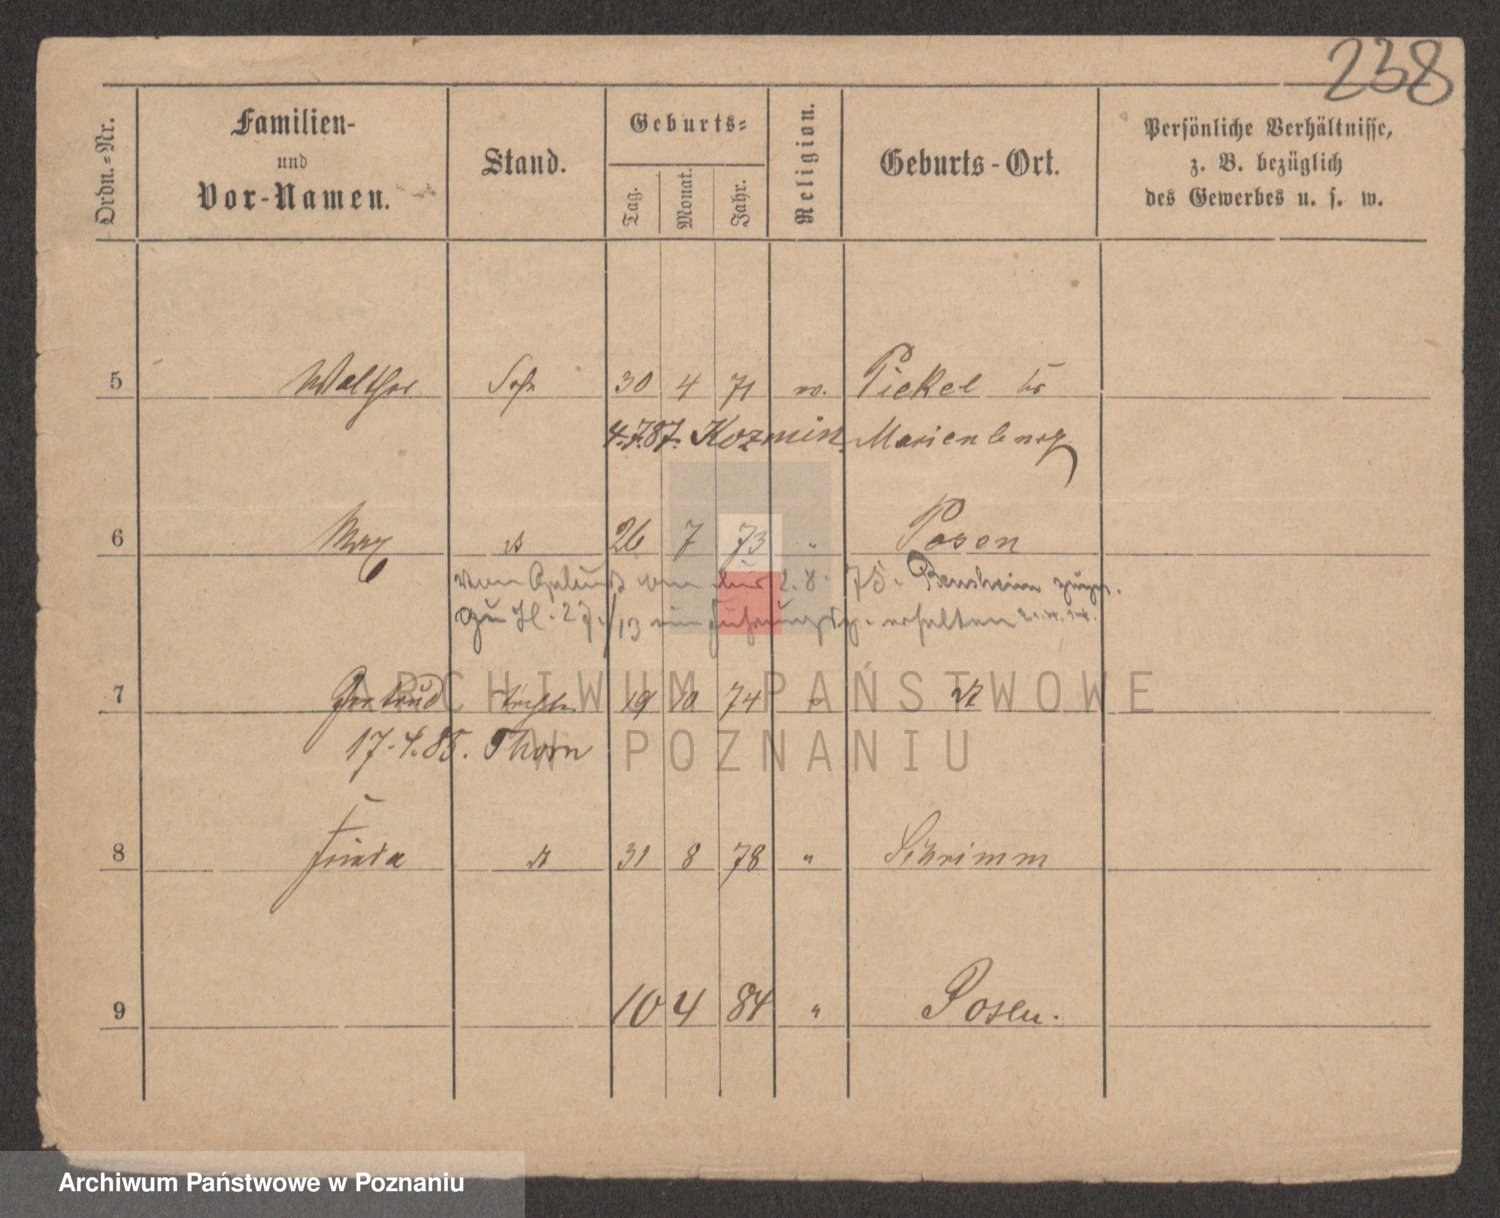 238
Ordn.-Nr.
Familien-
und
Vor-Namen.
Stand.
Geburts-
Tag.
Monat.
Jahr.
Religion.
Geburts-Ort.
Persönliche Verhältnisse,
z. B. bezüglich
des Gewerbes u. s. w.
5 Walther Sohn 30 4 71 Pickel
4.7.87. Kozmin. Marienburg
6 Max 26 7 73 " Posen
2.8.75. Bensheim
zu erhalten
7 Gertrud Tochter 19 10 74 "
17.4.88. Thorn
8 Frieda 31 8 78 " Schrimm
9 10 4 84 " Posen.
ARCHIWUM PAŃSTWOWE
W POZNANIU
Archiwum Państwowe w Poznaniu